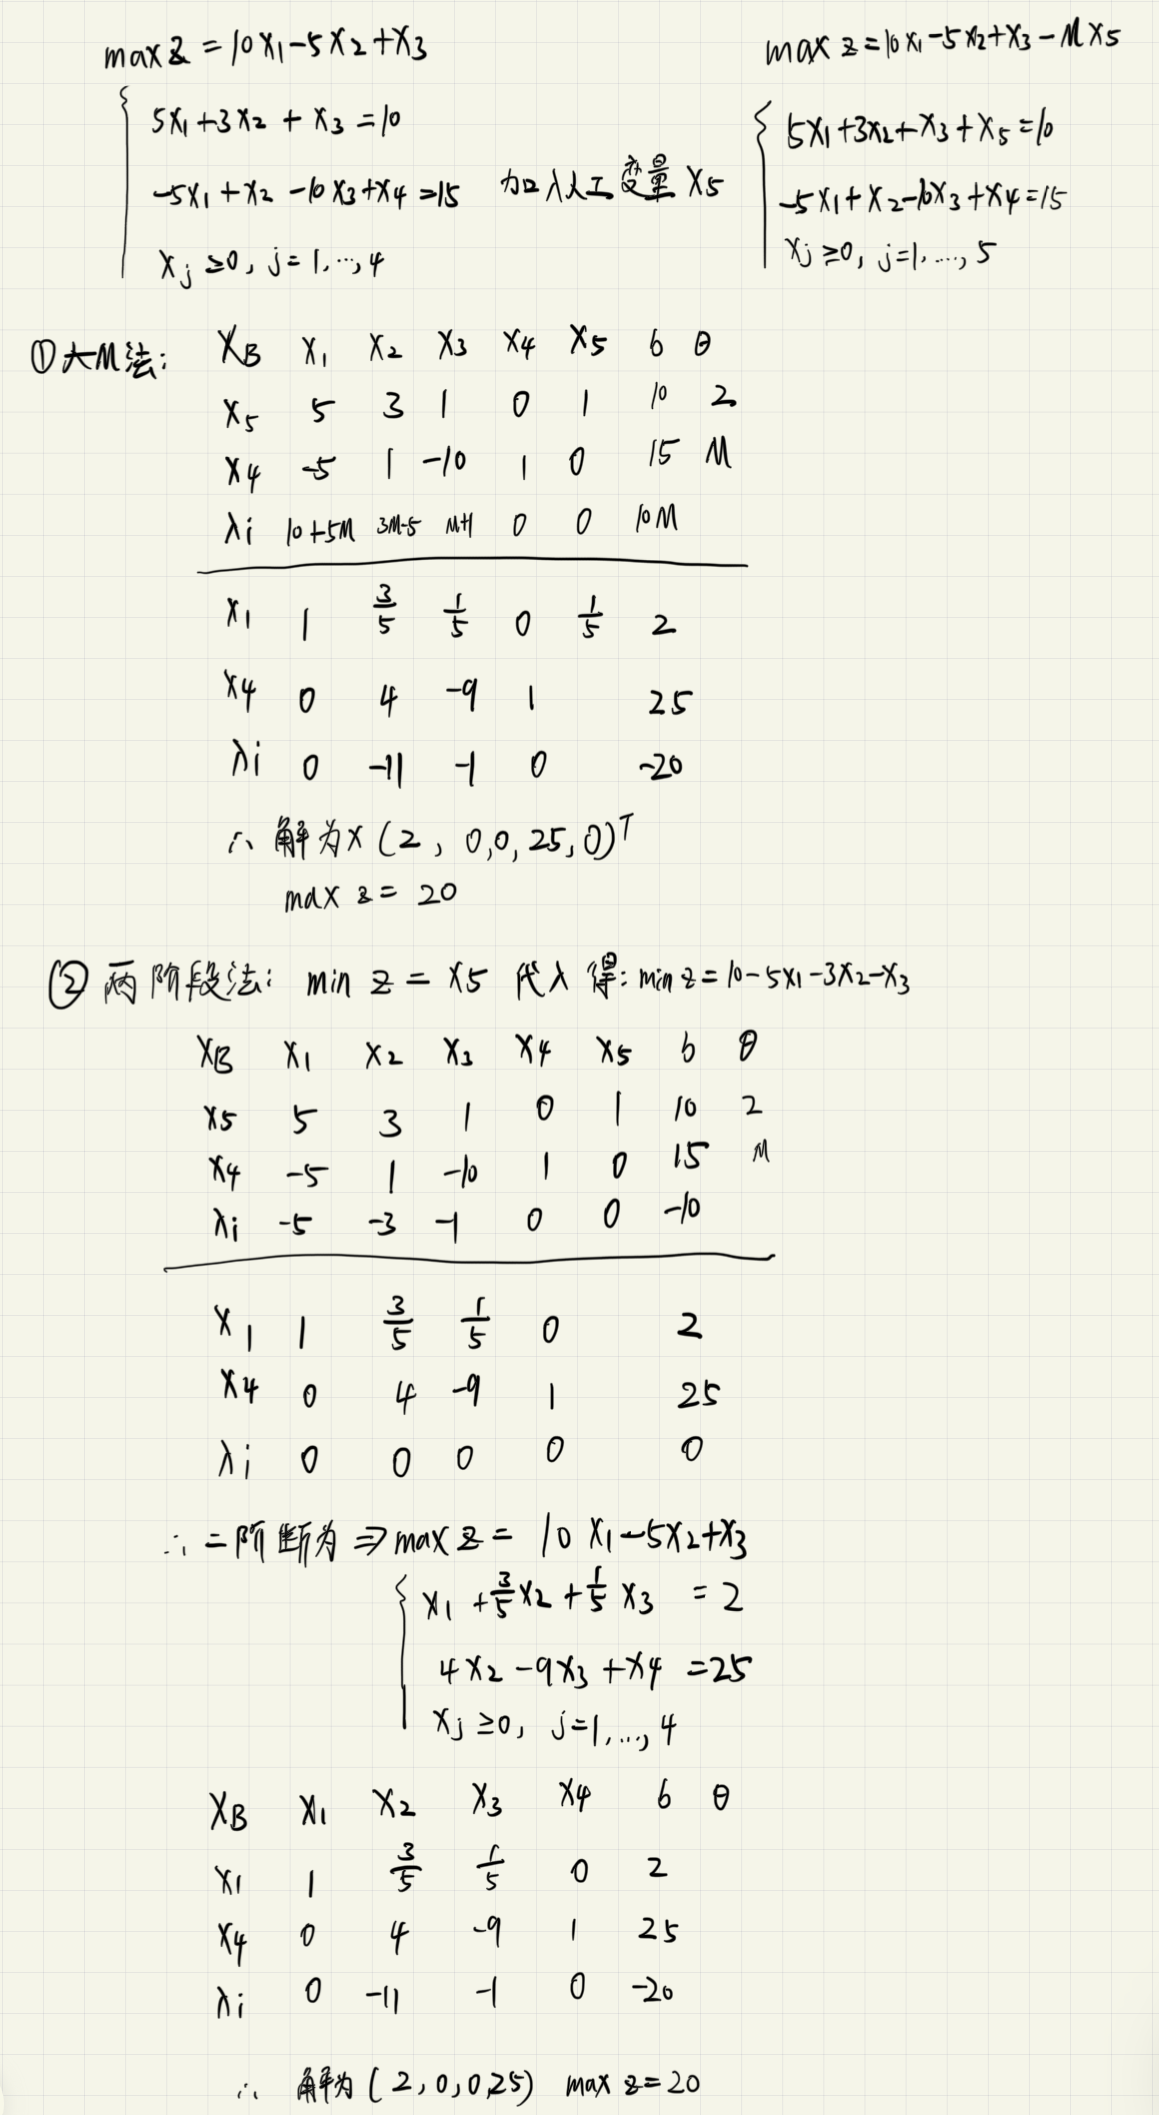 max z = 10x₁-5x₂+x₃
5x₁+3x₂+x₃=10
-5x₁+x₂-10x₃+x₄=15
xⱼ≥0, j=1,…,4
加入人工变量 x₅
max z=10x₁-5x₂+x₃-Mx₅
5x₁+3x₂+x₃+x₅=10
-5x₁+x₂-10x₃+x₄=15
xⱼ≥0, j=1,…,5
①大M法:
X_B x₁ x₂ x₃ x₄ x₅ b θ
x₅ 5 3 1 0 1 10 2
x₄ -5 1 -10 1 0 15 M
λi 10+5M 3M-5 M+1 0 0 10M
x₁ 1 3/5 1/5 0 1/5 2
x₄ 0 4 -9 1 25
λi 0 -11 -1 0 -20
∴ 解为x(2, 0,0,25,0)ᵀ
max z= 20
②两阶段法: min z = x₅ 代入得: min z=10-5x₁-3x₂-x₃
X_B x₁ x₂ x₃ x₄ x₅ b θ
x₅ 5 3 1 0 1 10 2
x₄ -5 1 -10 1 0 15 M
λi -5 -3 -1 0 0 -10
x₁ 1 3/5 1/5 0 2
x₄ 0 4 -9 1 25
λi 0 0 0 0 0
∴ 二阶断为⇒max z = 10x₁-5x₂+x₃
x₁+3/5x₂+1/5x₃ =2
4x₂-9x₃+x₄=25
xⱼ≥0, j=1,…,4
X_B x₁ x₂ x₃ x₄ b θ
x₁ 1 3/5 1/5 0 2
x₄ 0 4 -9 1 25
λi 0 -11 -1 0 -20
∴ 解为(2,0,0,25) max z=20